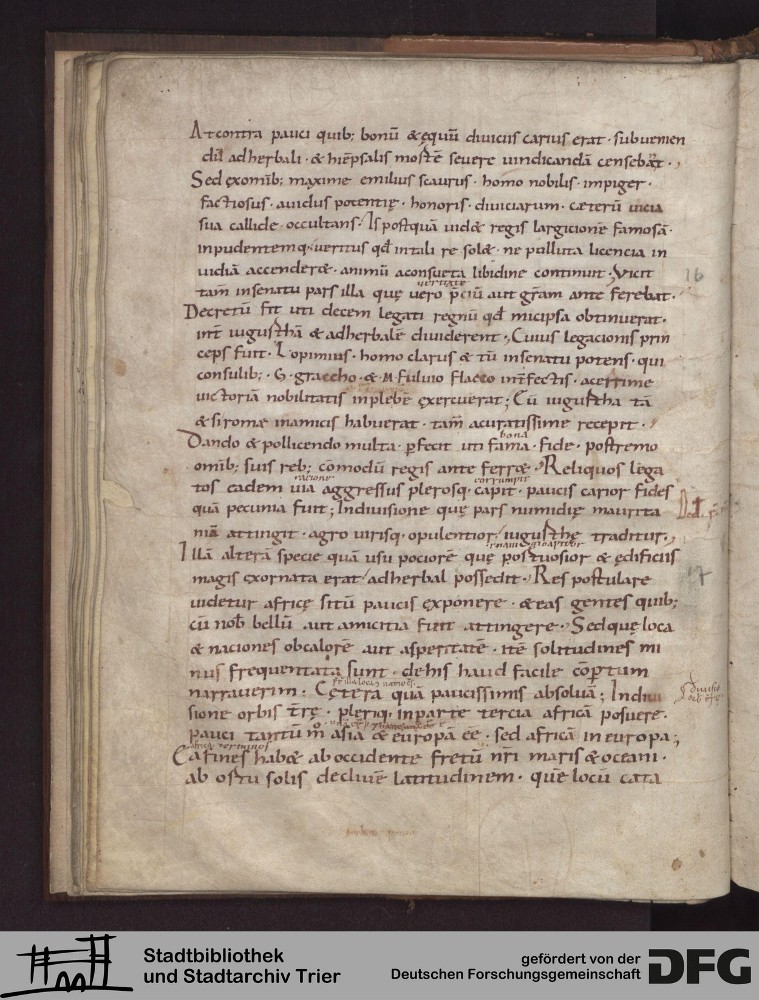 At contra pauci quib; bonū &ęquū diuiciis carius erat · subuenien
dū adherbali · & hiēpsalis mortē seuere uindicandā censebāt ·
Sed ex omīb; maxime emilius scaurus · homo nobilis · impiger ·
factiosus · auidus potentię · honoris · diuiciarum · cæterū uicia
sua callide · occultans / Is postquā uid& regis largicionē famosā ·
inpudentemq; ueritus qđ in tali re sol& · ne polluta licencia in
uidiā accender& · animū aconsueta libidine continuit · Vicit
tam̄ insenatu pars illa quę uero p̄ciū aut gr̄am ante ferebat ·
Decretū fit uti decem legati regnū qđ micipsa obtinuerat ·
int̄ iugurthā & adherbalē diuiderent · Cuius legacionis prin
ceps fuit · L opimius · homo clarus & tū insenatu potens · qui
consulib; · G · graccho · & · M · fuluio flacco int̄fectis · acerrime
uictoriā nobilitatis inplebē exercuerat ; Cū iugurtha tā
& si romæ inamicis habuerat · tam̄ acuratissime recepit ·
Dando & pollicendo multa · pfecit uti fama · fide · postremo
bona
omīb; suis reb; cōmodū regis ante ferr& · Reliquos lega
tos eadem uia aggressus plerosq; capit · paucis carior fides
racione corrumpit
quā pecunia fuit ; Indiuisione quę pars numidię maurita
niā attingit · agro uirisq; opulentior / iugurthę traditur ·
Illā alterā specie quā usu pociorē quę portuosior & ędificiis
magis exornata erat / adherbal possedit · Res postulare
uidetur africę sitū paucis exponere · & eas gentes quib;
cū nob̄ bellū aut amicitia fuit attingere · Sed quę loca
& naciones ob calorē aut asperitatē · itē solitudines mi
nus frequentata sunt · dehis haud facile cōptum
narrauerim · Cętera quā paucissimis absoluā ; Indiui
sione orbis tr̄ę · pleriq; inparte tercia africā posuere ·
pauci tantū m̊ asiā & europā ēe · sed africā in europa ;
Ea fines hab& ab occidente fretū nr̄i maris & oceani ·
ab ortu solis decliuē latitudinem · quē locū cata
16
17
Stadtbibliothek
und Stadtarchiv Trier
gefördert von der
Deutschen Forschungsgemeinschaft
DFG